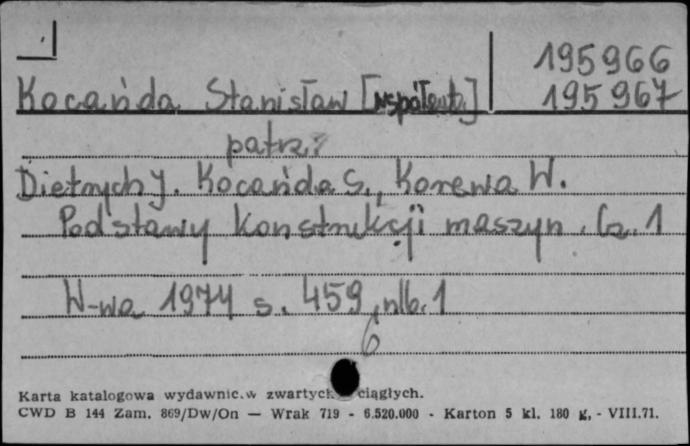 195966
Kocańda Stanisław [współaut.] 195967
patrz:
Dietrych J. Kocańda S., Korewa W.
Podstawy konstrukcji maszyn. Cz. 1
W-wa 1974 s. 459, nlb. 1
6
Karta katalogowa wydawnic.w zwartych ciągłych.
CWD B 144 Zam. 869/Dw/On — Wrak 719 - 6.520.000 - Karton 5 kl. 180 g, - VIII.71.